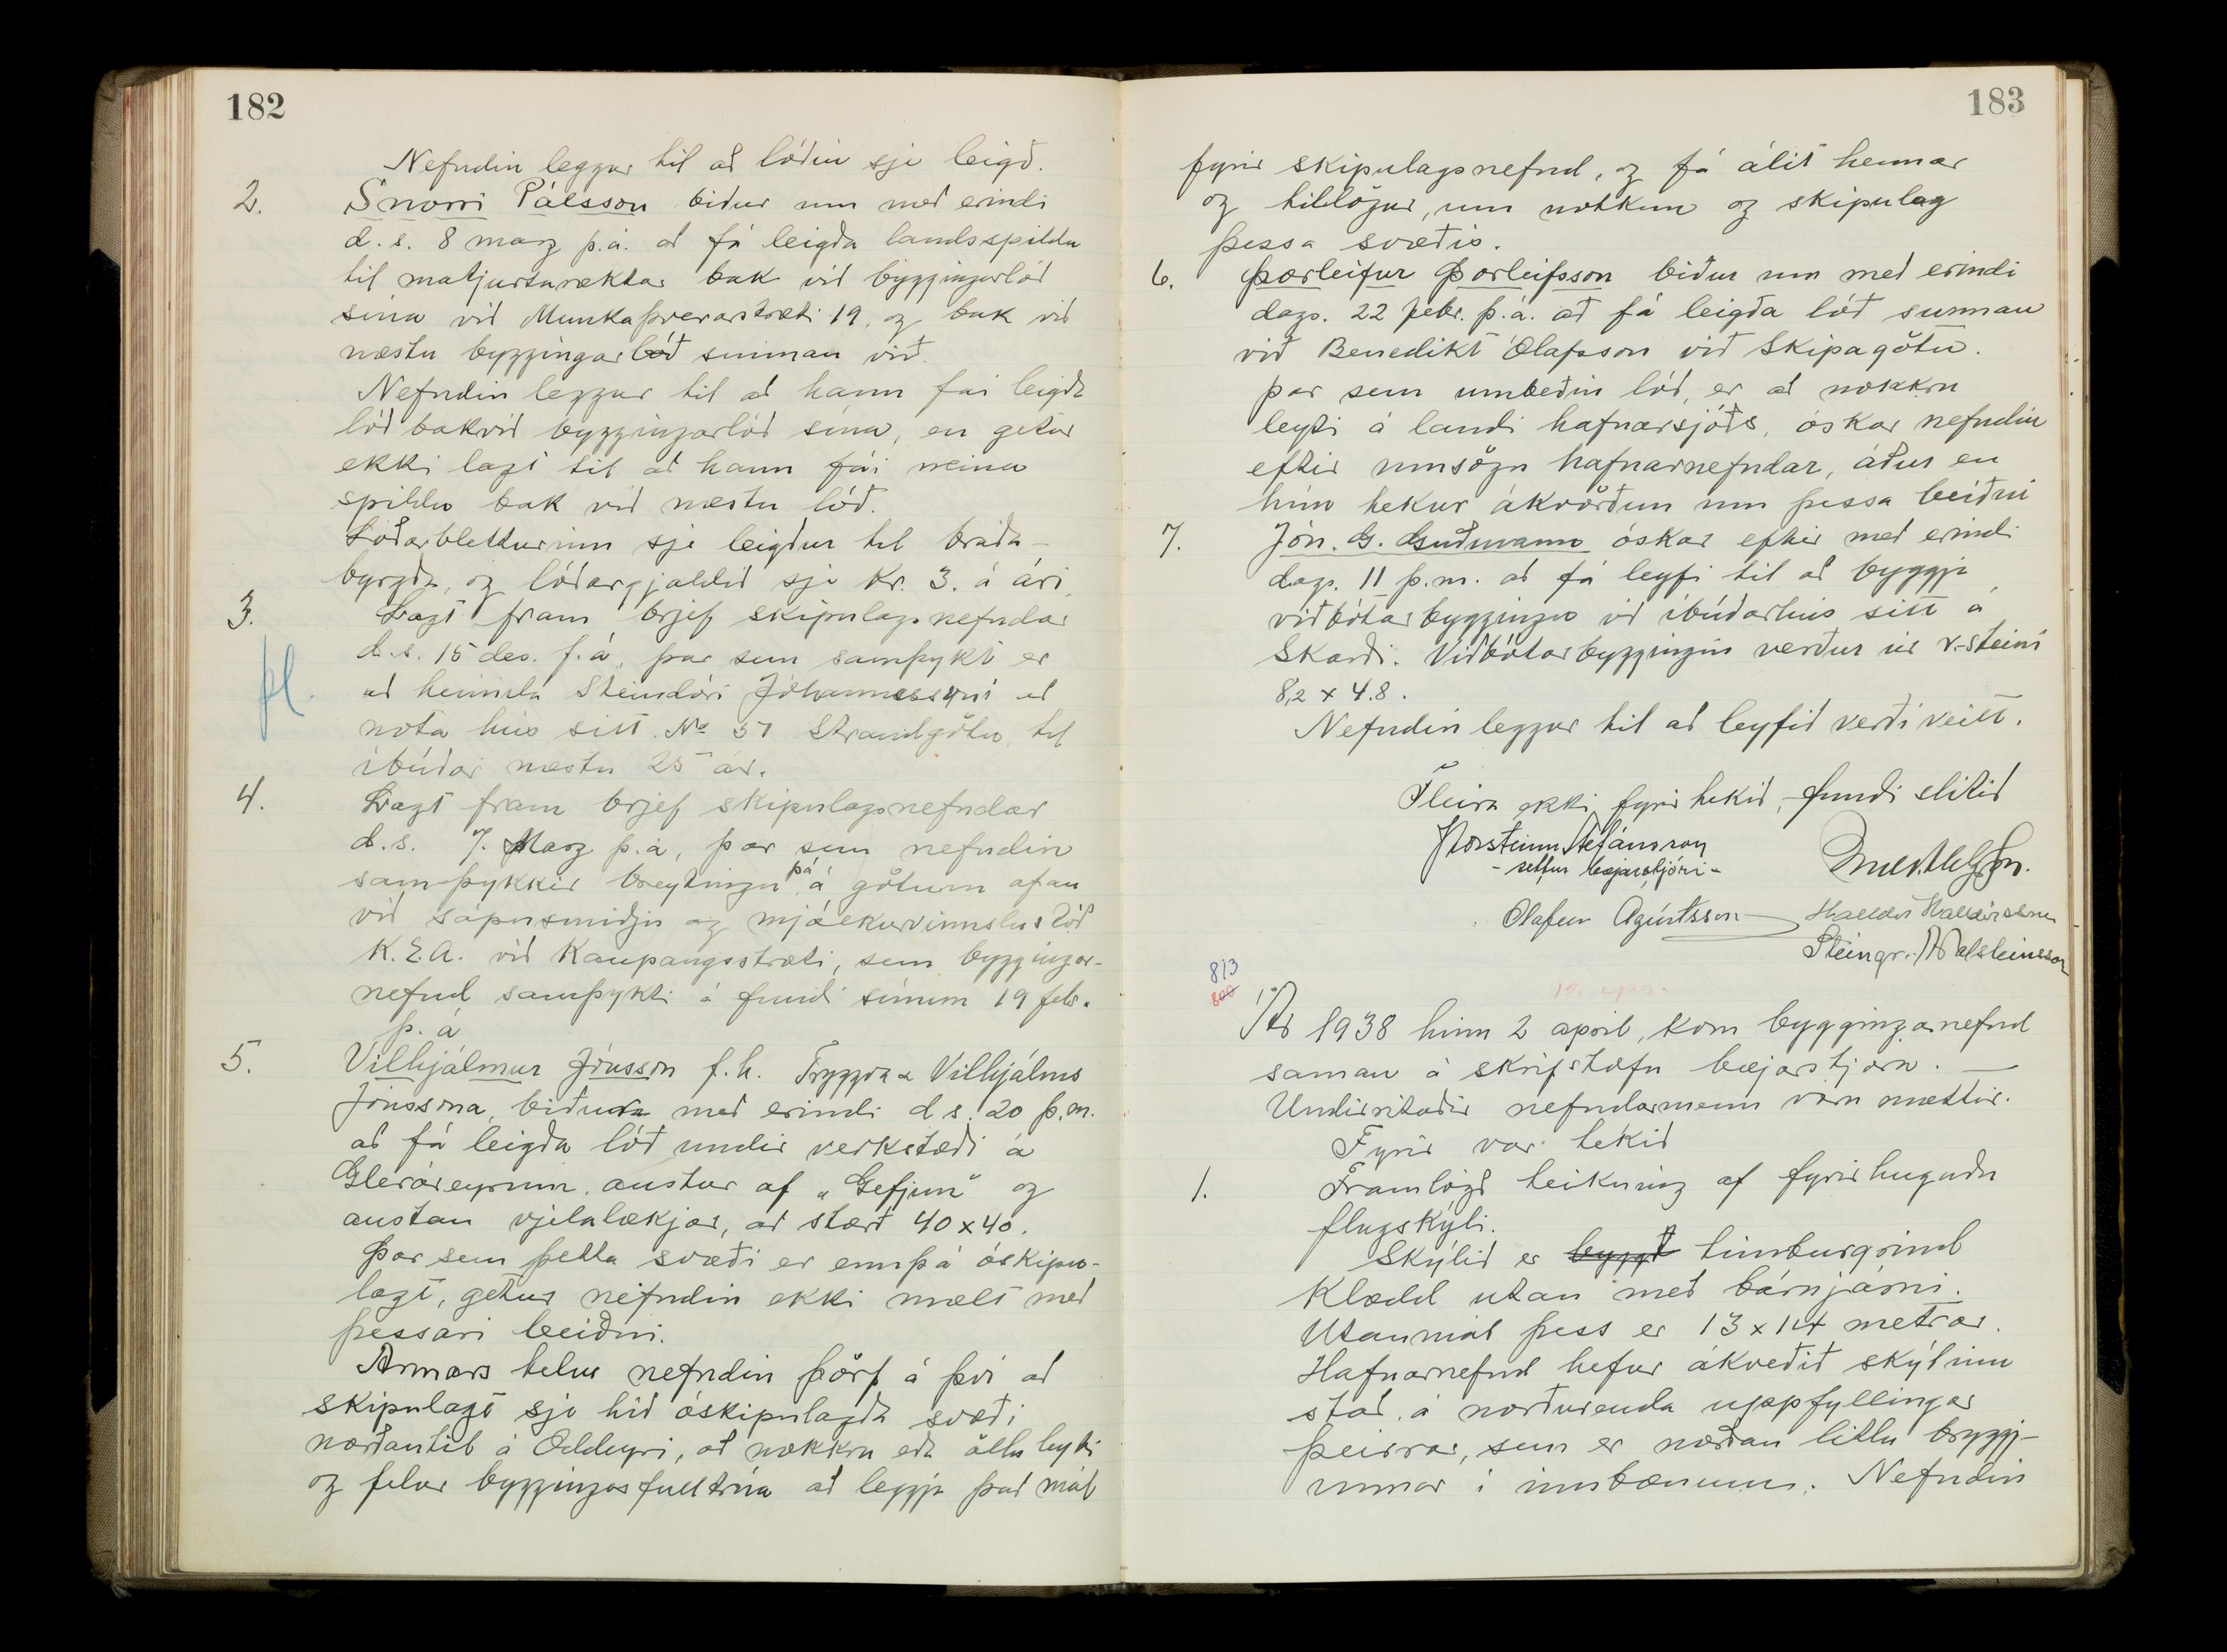 182
Nefndin leggur til að lóðin sje leigð.
2. Snorri Pálsson biður um með erindi
d.s. 8 marz þ.á. að fá leigða landsspildu
til matjurtaræktar bak við byggingarlóð
sína við Munkaþverárstræti 19, og bak við
næstu byggingarlóð sunnan við.
Nefndin leggur til að hann fái leigða
lóð bakvið byggingarlóð sína, en getur
ekki lagt til að hann fái neina
spildu bak við næstu lóð.
Lóðarbletturinn sje leigður til bráða-
byrgða, og lóðargjaldið sje Kr. 3. á ári
3. Lagt fram brjef skipulagsnefndar
d.s. 15 des. f.á, þar sem samþykt er
að heimila Steindóri Jóhannessyni að
nota hús sitt No 51 Strandgötu, til
íbúðar næstu 25 ár.
4. Lagt fram brjef skipulagsnefndar
d.s. 7. Marz þ.á, þar sem nefndin
samþykkir breytingu þá á götum ofan
við sápusmiðju og mjólkurvinnslustöð
K.E.A. við Kaupangsstræti, sem byggingar-
nefnd samþykti á fundi sínum 19 febr.
þ.á
5. Vilhjálmur Jónsson f.h. Tryggva & Vilhjálms
Jónssona, biður með erindi d.s. 20 þ.m.
að fá leigða lóð undir verkstæði á
Gleráreyrum, austur af "Gefjun" og
austan vjelalækjar, að stærð 40 x 40.
Þar sem þetta svæði er ennþá óskipu-
lagt, getur nefndin ekki mælt með
þessari beiðni.
Annars telur nefndin þörf á því að
skipulagt sje hið óskipulagða svæði
norðantil á Oddeyri, að nokkru eða öllu leyti
og felur byggingarfulltrúa að leggja það mál
183
fyrir skipulagsnefnd, og fá álit hennar
og tillögur, um notkun og skipulag
þessa svæðis.
6. Þorleifur Þorleifsson biður um með erindi
dags. 22 febr. þ.á. að fá leigða lóð sunnan
við Benedikt Ólafsson við Skipagötu.
þar sem umbeðin lóð, er að nokkru
leyti á landi hafnarsjóðs, óskar nefndin
eftir umsögn hafnarnefndar, áður en
hún tekur ákvörðun um þessa beiðni
7. Jón. G. Guðmann óskar eftir með erindi
dags. 11 þ.m. að fá leyfi til að byggja
viðbótarbyggingu við íbúðarhús sitt á
Skarði. Viðbótarbyggingin verður úr r-steini
8,2 x 4.8.
Nefndin leggur til að leyfið verði veitt.
Fleira ekki fyrir tekið, fundi slitið
Þorsteinn Stefánsson
- settur bæjarstjóri -
Ólafur Ágústsson Halldór Halldórsson
Steingr. Aðalsteinsson
813
800
Ár 1938 hinn 2 apríl, kom bygginganefnd
saman á skrifstofu bæjarstjóra. —
Undirritaðir nefndarmenn voru mættir.
Fyrir var tekið
1. Framlögð teikning af fyrirhuguðu
flugskýli.
Skýlið er byggt timburgrind
klædd utan með bárujárni.
Utanmál þess er 13 x 14 metrar.
Hafnarnefnd hefur ákveðið skýlinu
stað á norðurenda uppfyllingar
þeirrar, sem er norðan litlu bryggj-
unnar í innbænum. Nefndin